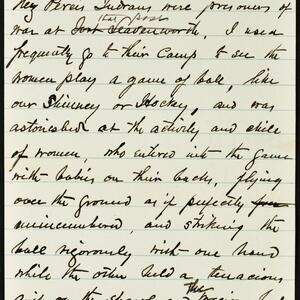 Nez Perces Indians were prisoners of
war at Fort Leavenworth, that post I used
frequently go to their camp to see the
women play a game of ball, like
our Shinney or Hockey, and was
astonished at the activity and skill
of women, who entered into the game
with babies on their backs, flying
over the ground as if perfectly free
unincumbered, and striking the
ball vigorously with one hand
while the other held a tenacious
on the shawl The